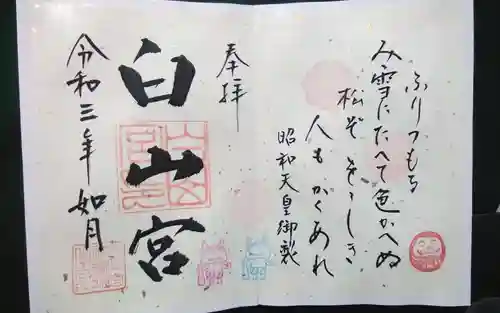 ふりつもる
み雪にたへて色かへぬ
松ぞをゝしき
人もかくあれ
昭和天皇御製
奉拝
白山宮
令和三年 如月